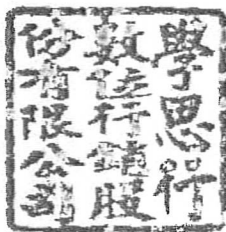 學思行
數位行銷股
份有限公司